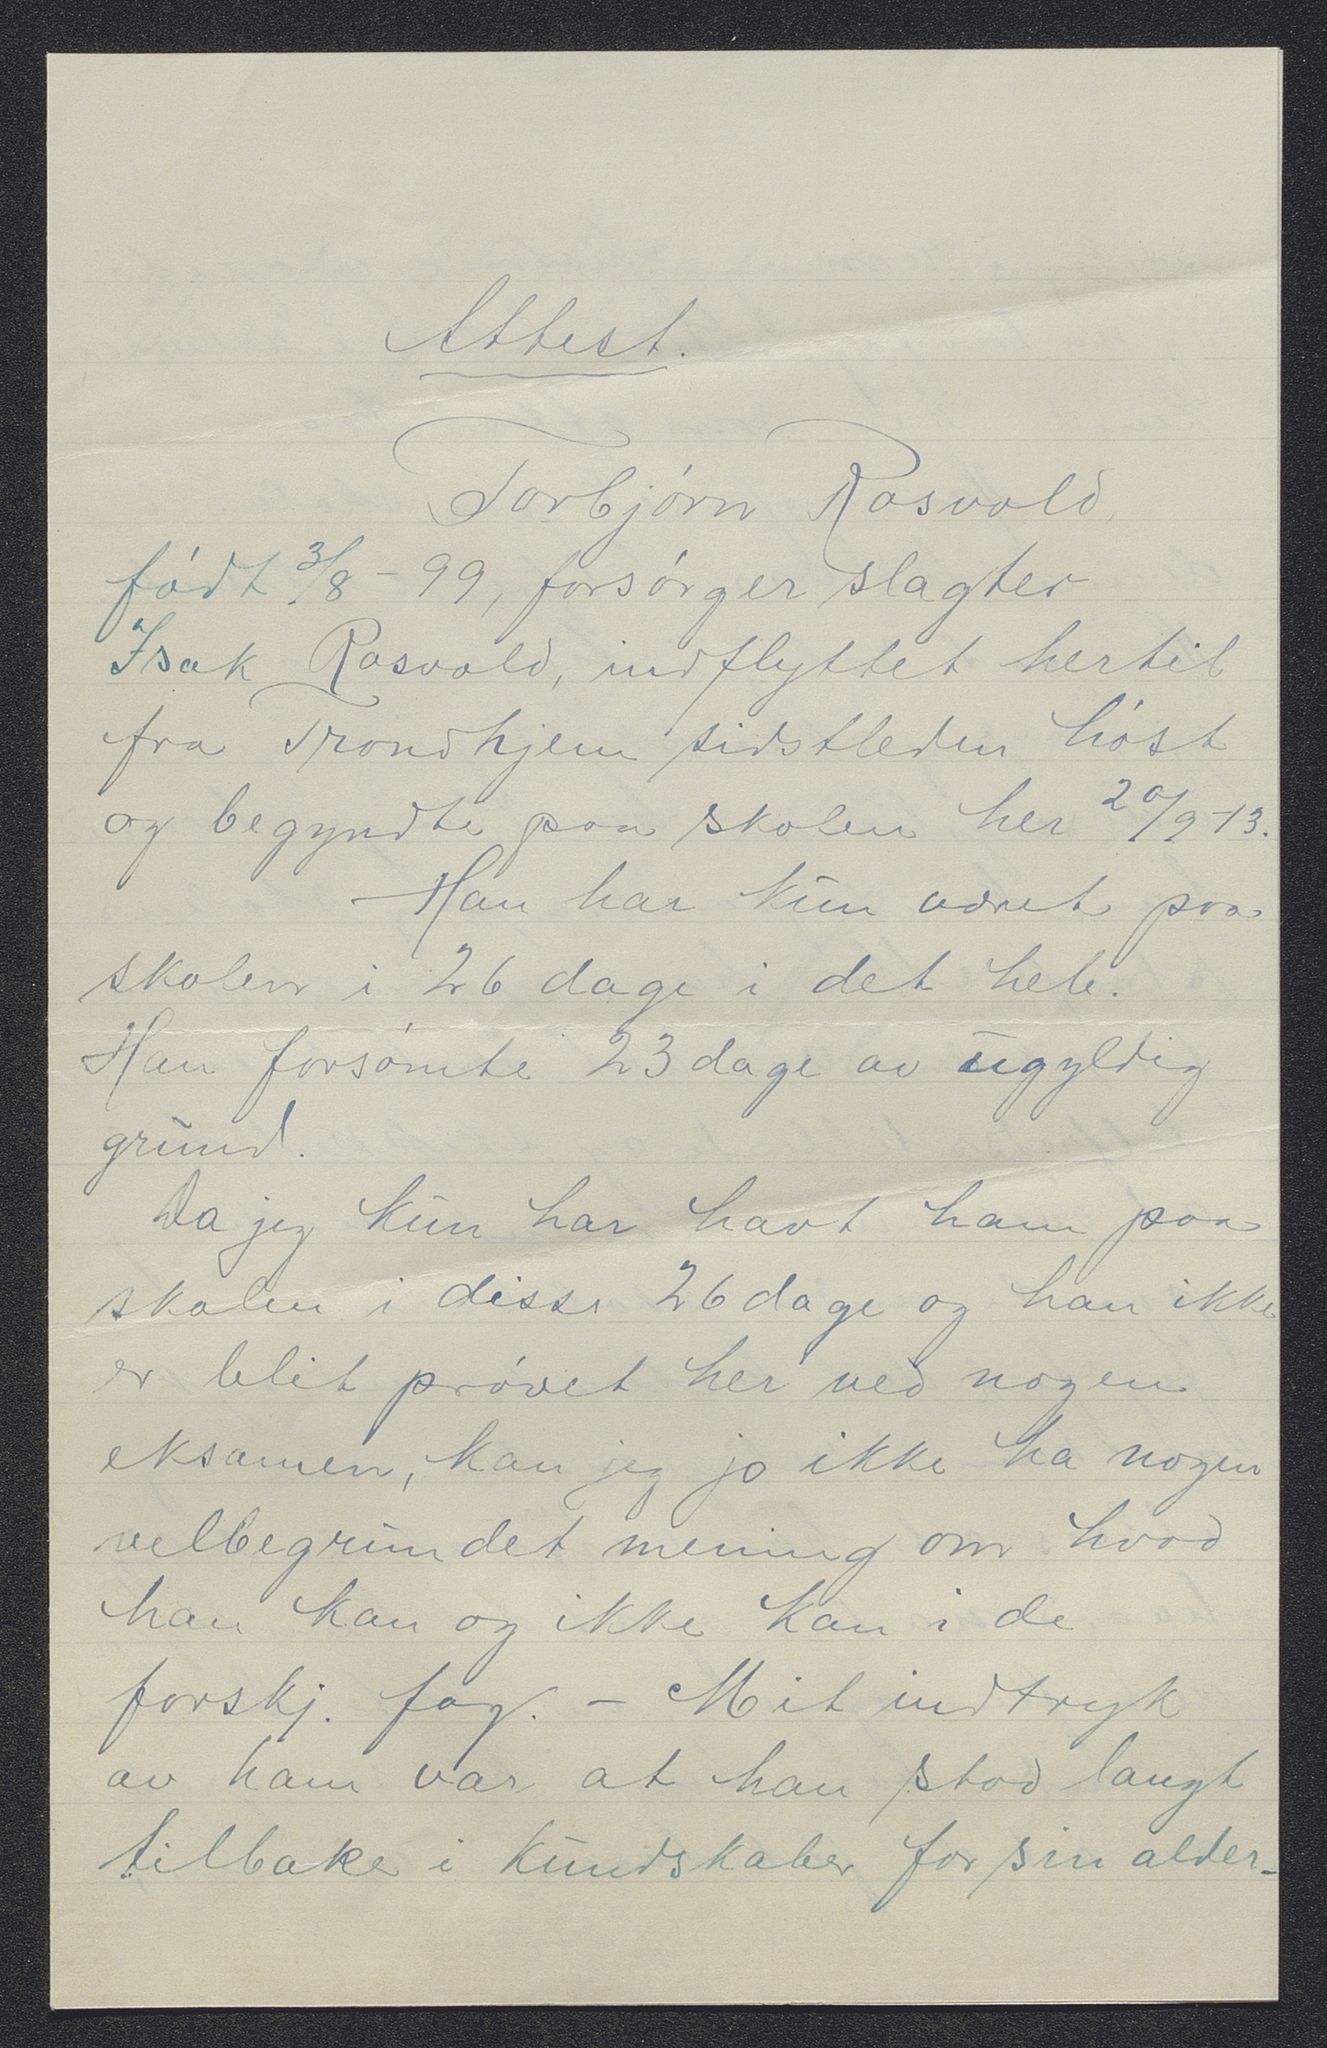 Attest.
Torbjørn Rosvold,
født 3/8 - 99, forsørger slagter
Isak Rosvold, indflyttet hertil
fra Trondhjem sidstleden høst
og begyndte paa skolen her 20/9-13.
Han har kun været paa
skolen i 26 dage i det hele.
Han forsømte 23 dage av ugyldig
grund.
Da jeg kun har havt ham paa
skolen i disse 26 dage og han ikke
er blit prøvet her ved nogen
eksamen, kan jeg jo ikke ha nogen
velbegrundet mening om hvad
han kan og ikke kan i de
forskj. fag. - Mit indtryk
av ham var at han stod langt
tilbake i kundskaber for sin alder -